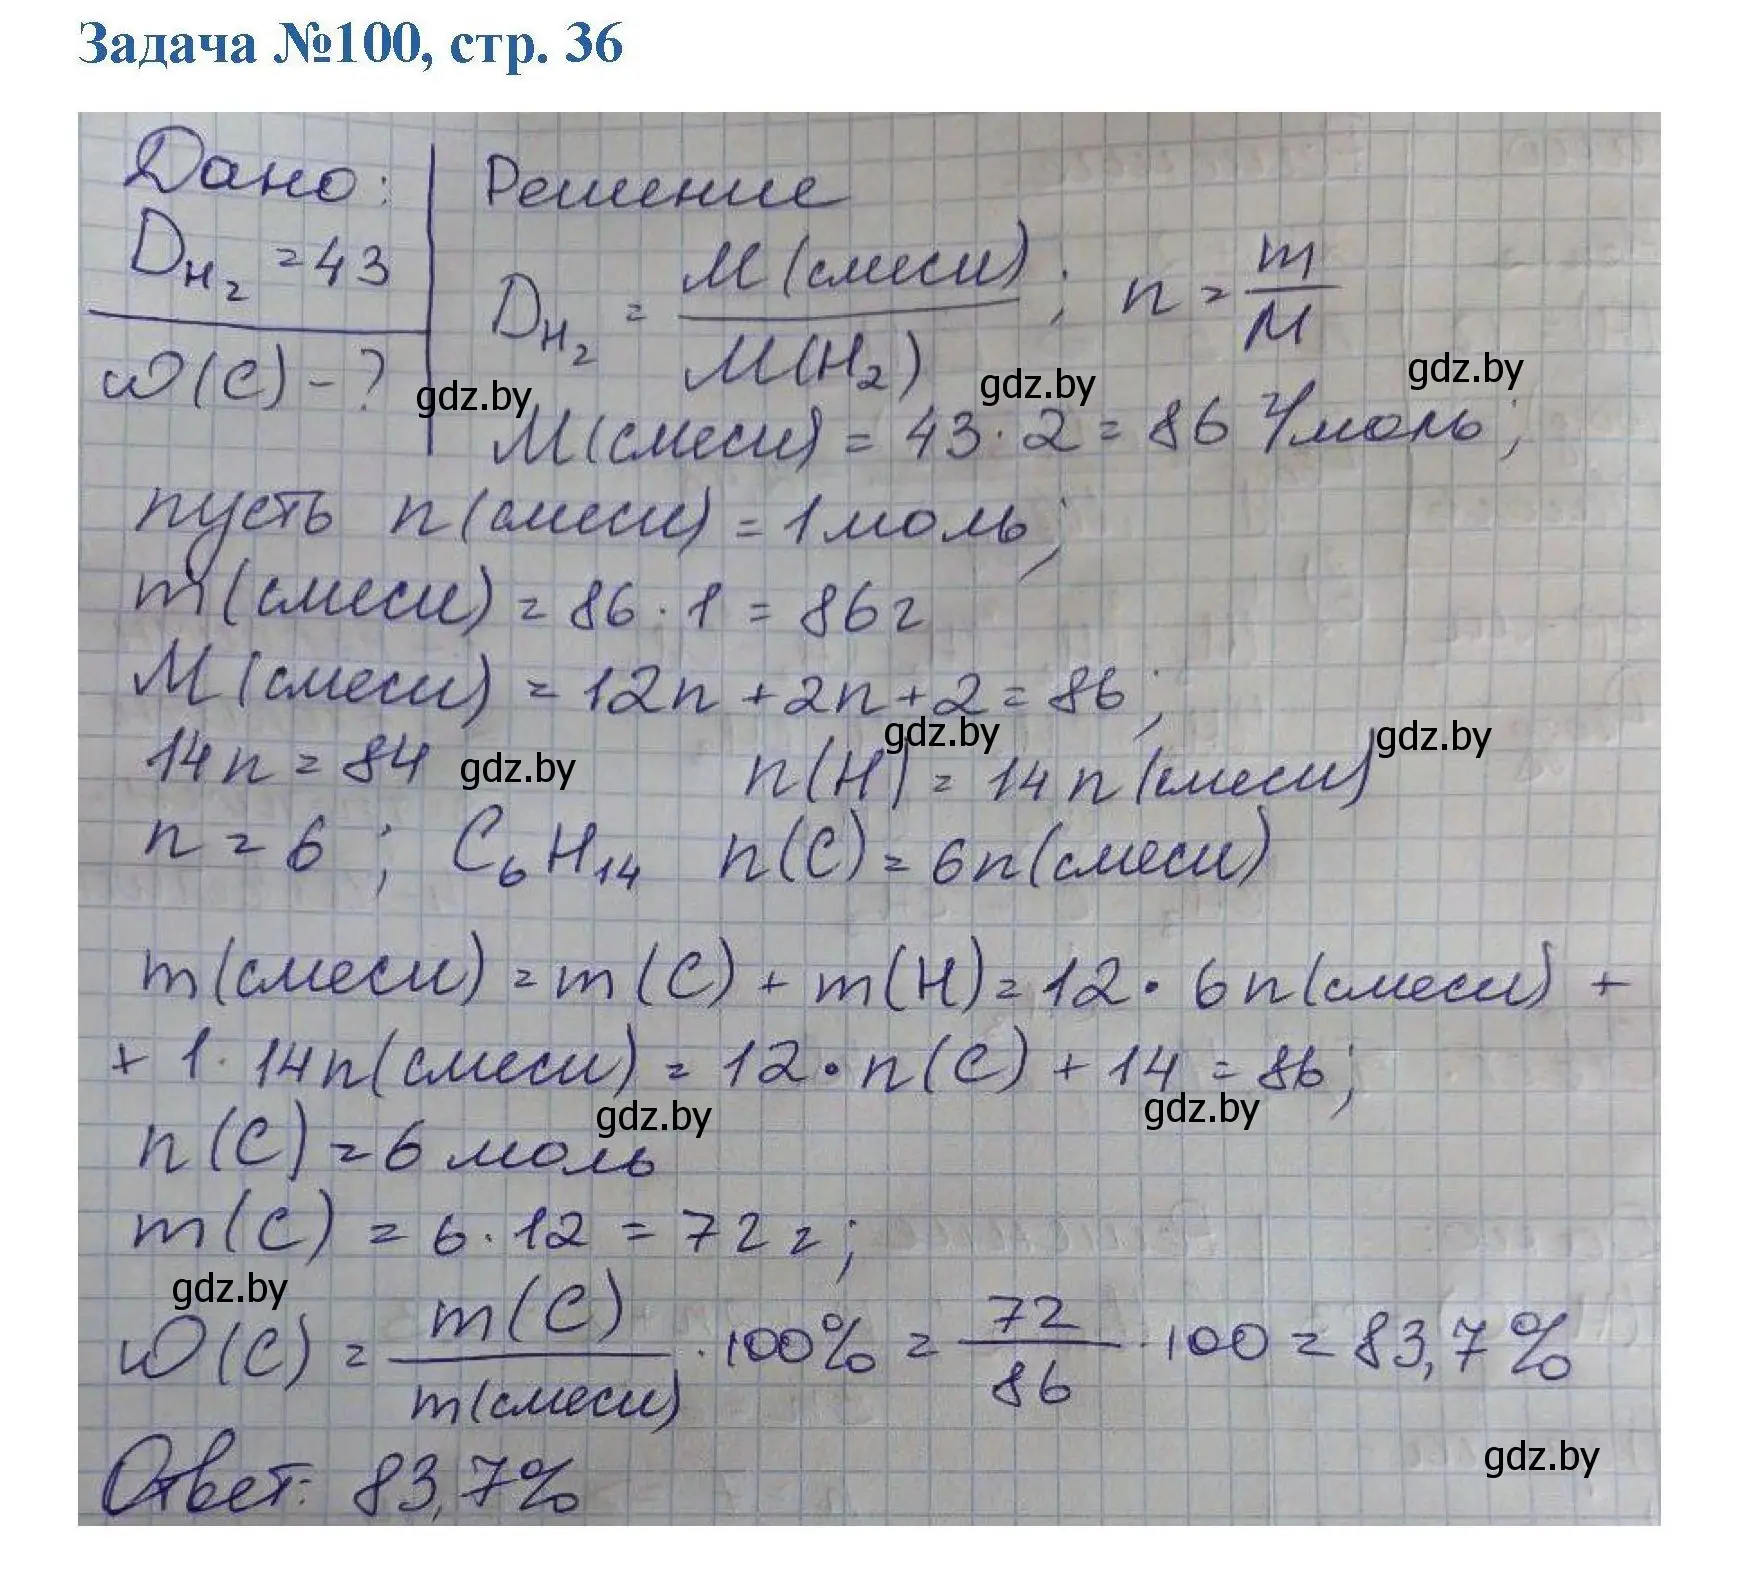 Задача №100, стр. 36
Дано: Решение
D_H₂ = 43 D_H₂ = M(смеси) / M(H₂) ; n = m / M
ω(C) - ?
gdz.by gdz.by gdz.by
M(смеси) = 43 · 2 = 86 г/моль;
пусть n(смеси) = 1 моль;
m(смеси) = 86 · 1 = 86 г
M(смеси) = 12n + 2n + 2 = 86;
gdz.by gdz.by gdz.by
14n = 84 n(H) = 14n(смеси)
n = 6 ; C₆H₁₄ n(C) = 6n(смеси)
m(смеси) = m(C) + m(H) = 12 · 6n(смеси) +
+ 1 · 14n(смеси) = 12 · n(C) + 14 = 86;
gdz.by gdz.by
n(C) = 6 моль
m(C) = 6 · 12 = 72 г;
gdz.by
ω(C) = m(C) / m(смеси) · 100% = 72 / 86 · 100 = 83,7%
gdz.by
Ответ: 83,7%